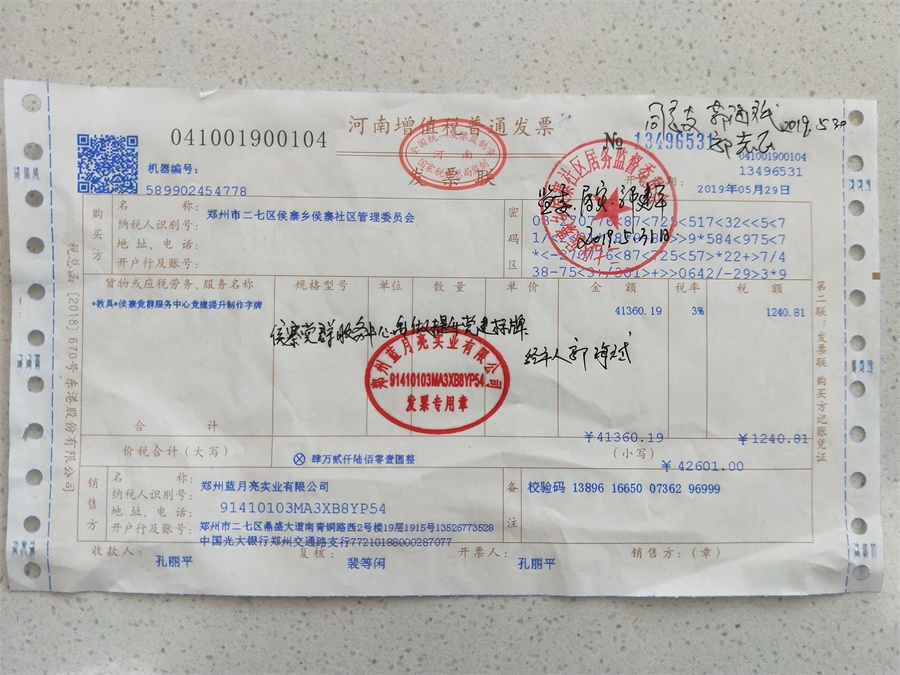 河南增值税普通发票
发票联
041001900104
№ 13496531
041001900104
13496531
机器编号：
589902454778
2019年05月29日
2019.5.30
购买方
名称：郑州市二七区侯寨乡侯寨社区管理委员会
纳税人识别号：
地址、电话：
开户行及账号：
密码区
2019.5.31日
*<-2 0/6<87<725<57>*22+>7/4
38-75<3+/301>+>>0642/-29>3*9
货物或应税劳务、服务名称 规格型号 单位 数量 单价 金额 税率 税额
*教具*侯寨党群服务中心党建提升制作字牌 41360.19 3% 1240.81
经手人
郑州蓝月亮实业有限公司
91410103MA3XB8YP54
发票专用章
合计 ￥41360.19 ￥1240.81
价税合计（大写） ⊗ 肆万贰仟陆佰零壹圆整 （小写） ￥42601.00
销售方
名称：郑州蓝月亮实业有限公司
纳税人识别号：91410103MA3XB8YP54
地址、电话：郑州市二七区鼎盛大道南青铜路西2号楼19层1915号13526773528
开户行及账号：中国光大银行郑州交通路支行77210188000287077
备注
校验码 13896 16650 07362 96999
收款人：孔丽平 复核：裴等闲 开票人：孔丽平 销售方：（章）
税总函〔2018〕670号东港股份有限公司
第二联：发票联 购买方记账凭证